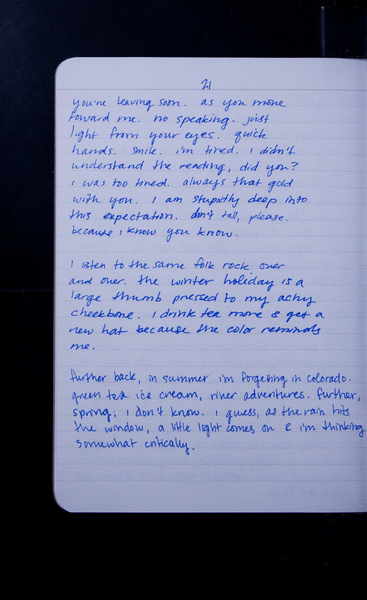 21
you're leaving soon. as you move
toward me. no speaking. just
light from your eyes. quick
hands. smile. i'm tired. i didn't
understand the reading, did you?
i was too tired. always that gold
with you. i am stupidly deep into
this expectation. don't tell, please.
because i know you know.
I listen to the same folk rock over
and over. the winter holiday is a
large thumb pressed to my achy
cheekbone. I drink tea more & get a
new hat because the color reminds
me.
further back, in summer i'm forgetting in colorado.
green tea ice cream, river adventures. further,
spring; i don't know. i guess, as the rain hits
the window, a little light comes on & i'm thinking
somewhat critically.